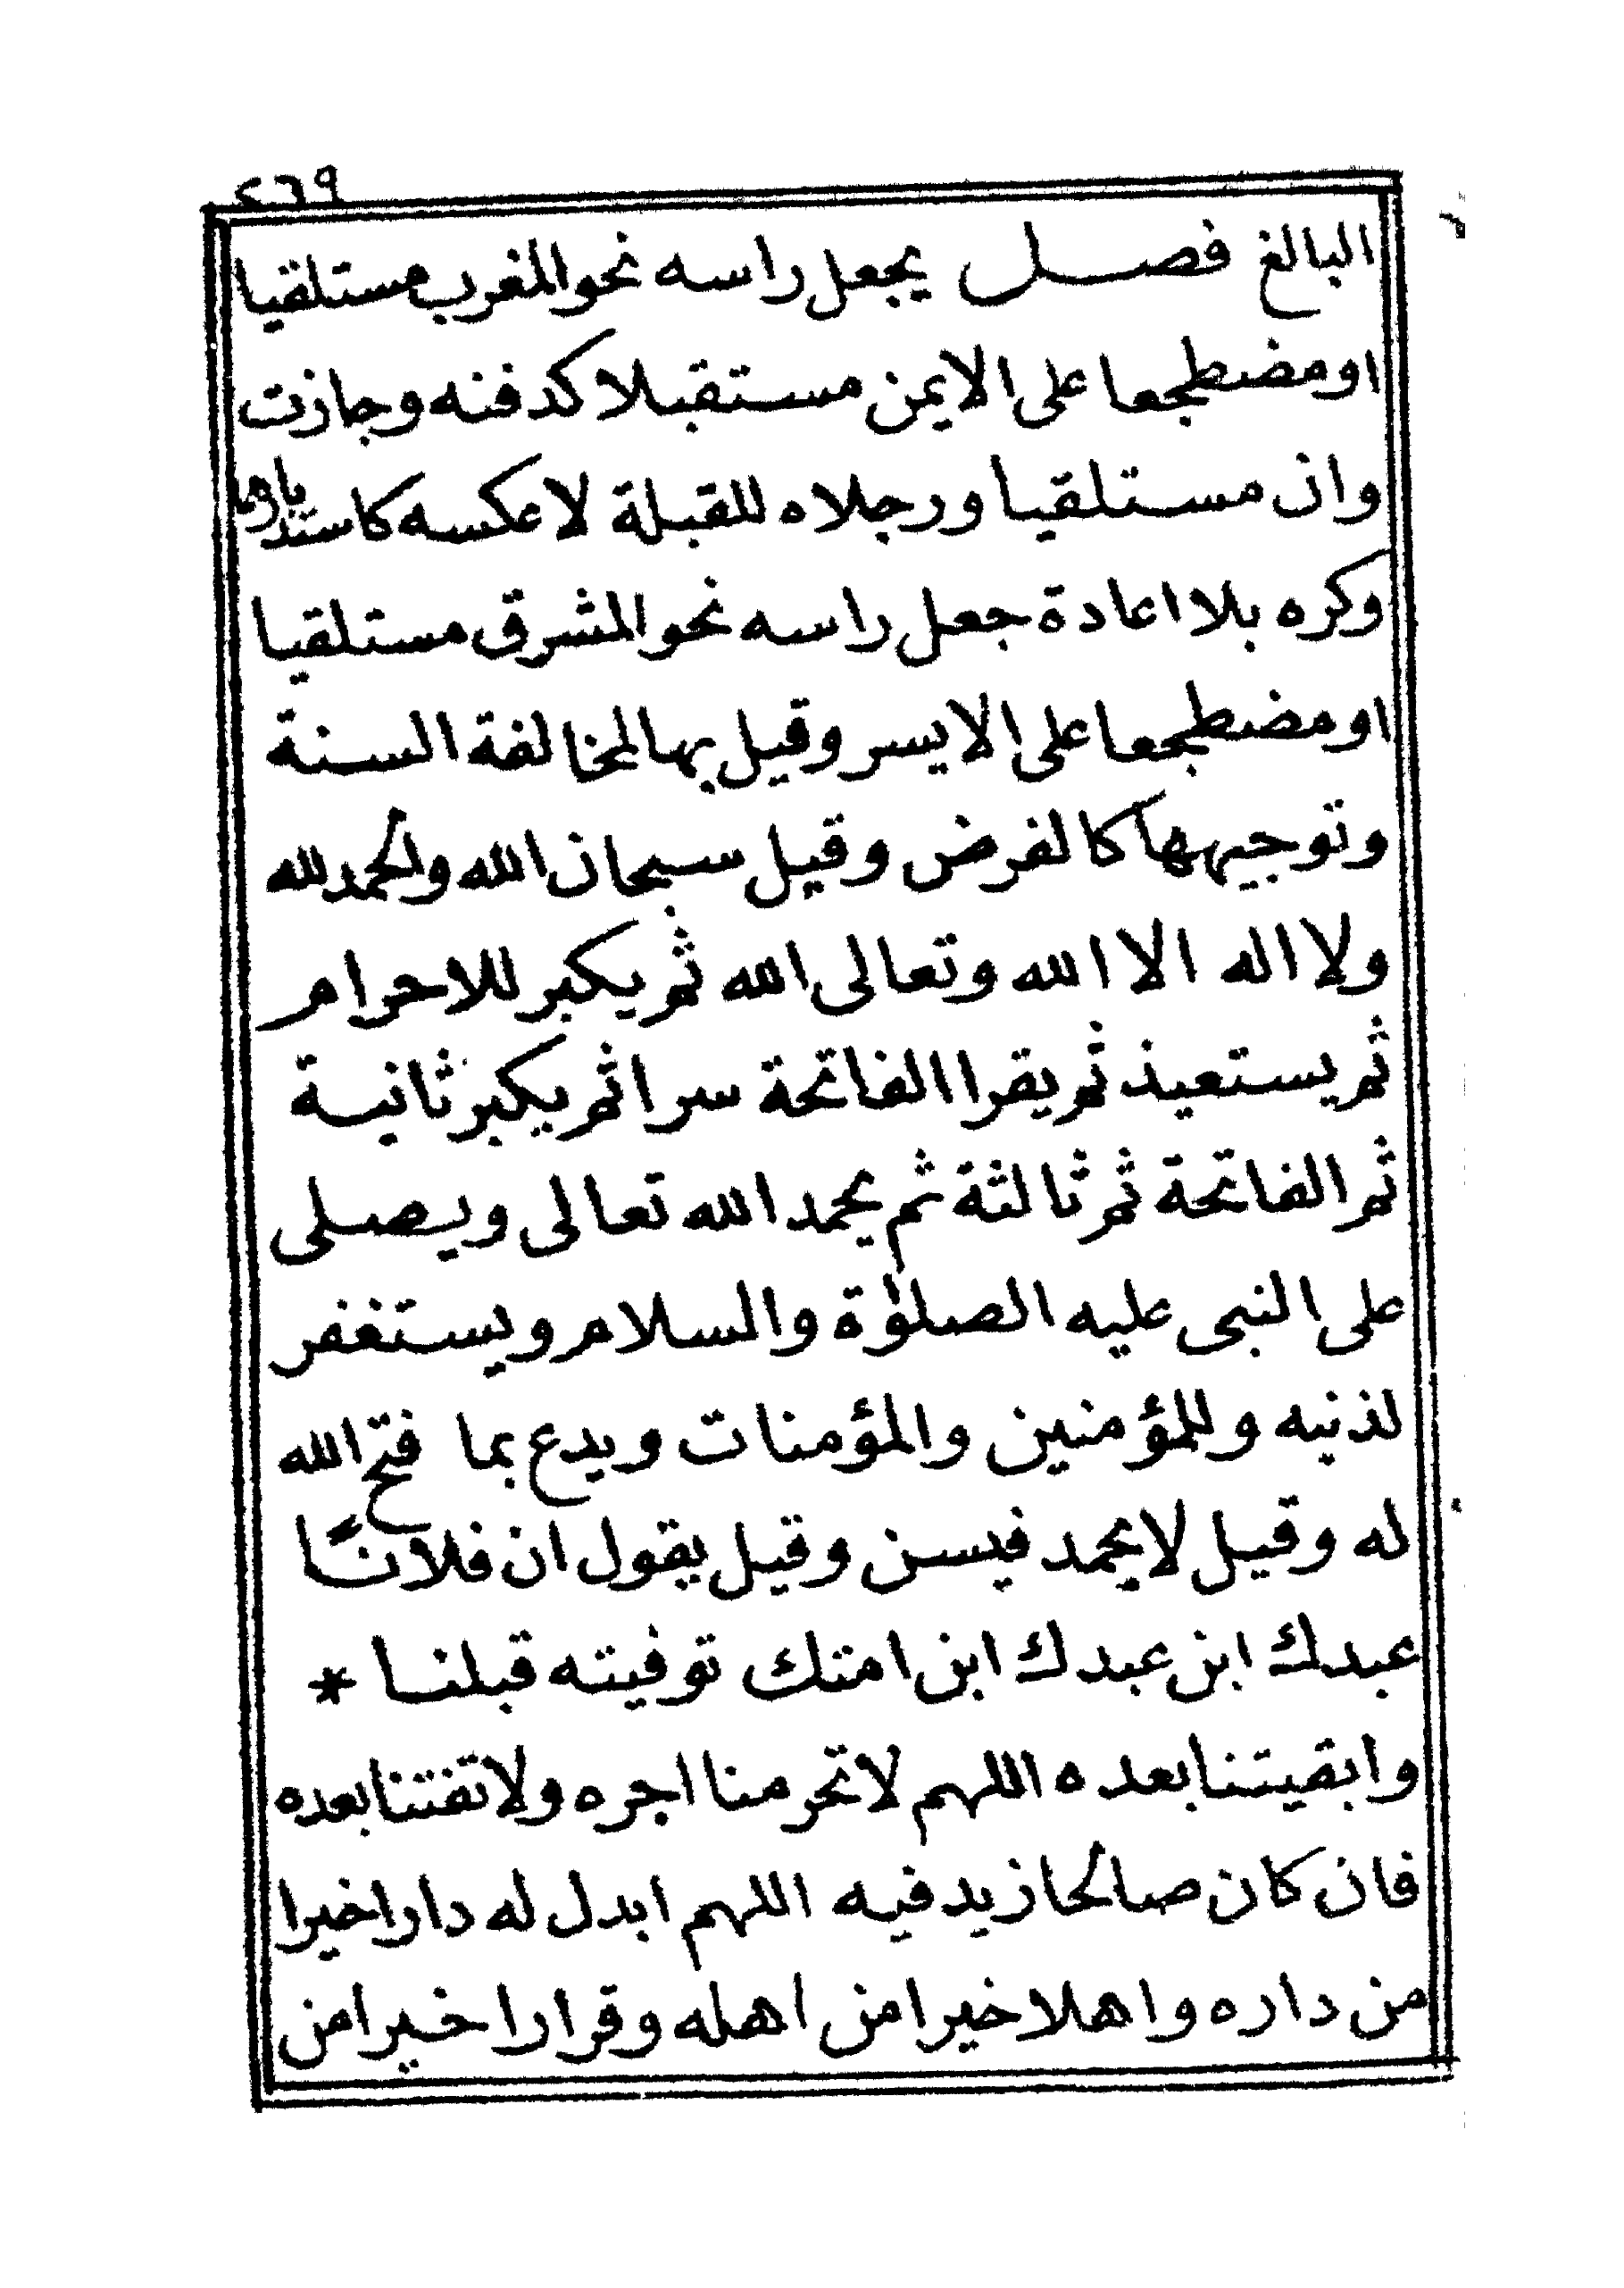 ٤٦٩
البالغ فصل يجعل راسه نحو المغرب مستلقيا
او مضطجعا على الايمن مستقبلا كدفنه وجازت
وان مستلقيا ورجلاه للقبلة لا عكسه كاستدبارها
وكره بلا اعادة جعل راسه نحو المشرق مستلقيا
او مضطجعا على الايسر وقيل بها لمخالفة السنة
وتوجيهها كالفرض وقيل سبحان الله والحمد لله
ولا اله الا الله وتعالى الله ثم يكبر للاحرام
ثم يستعيذ ثم يقرا الفاتحة سرا ثم يكبر ثانية
ثم الفاتحة ثم ثالثة ثم يحمد الله تعالى ويصلى
على النبى عليه الصلوٰة والسلام ويستغفر
لذنبه وللمؤمنين والمؤمنات ويدع بما فتح الله
له وقيل لا يحمد فيسن وقيل يقول ان فلانًا
عبدك ابن عبدك ابن امتك توفيته قبلنا *
وابقيتنا بعده اللهم لا تحرمنا اجره ولا تفتنا بعده
فان كان صالحا زيد فيه اللهم ابدل له دارا خيرا
من داره واهلا خيرا من اهله وقرارا خيرا من